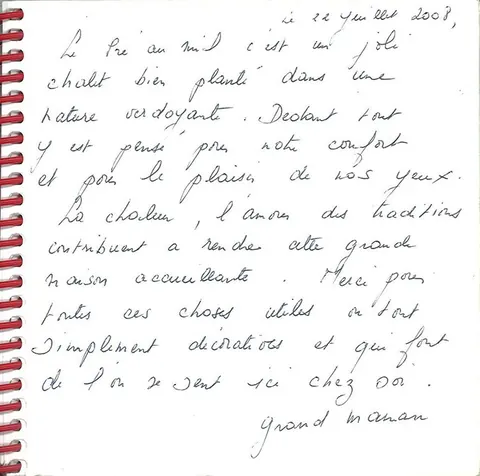 Le 22 Juillet 2008,
Le Pré au mil c'est un joli
chalet bien planté dans une
nature verdoyante. Dedant tout
y est pensé pour notre confort
et pour le plaisir de nos yeux.
La chaleur, l'amour des traditions
contribuent a rendre cette grande
maison accueillante. Merci pour
toutes ces choses utiles ou tout
simplement décoratives et qui font
de l'on se sent ici chez soi.
grand maman